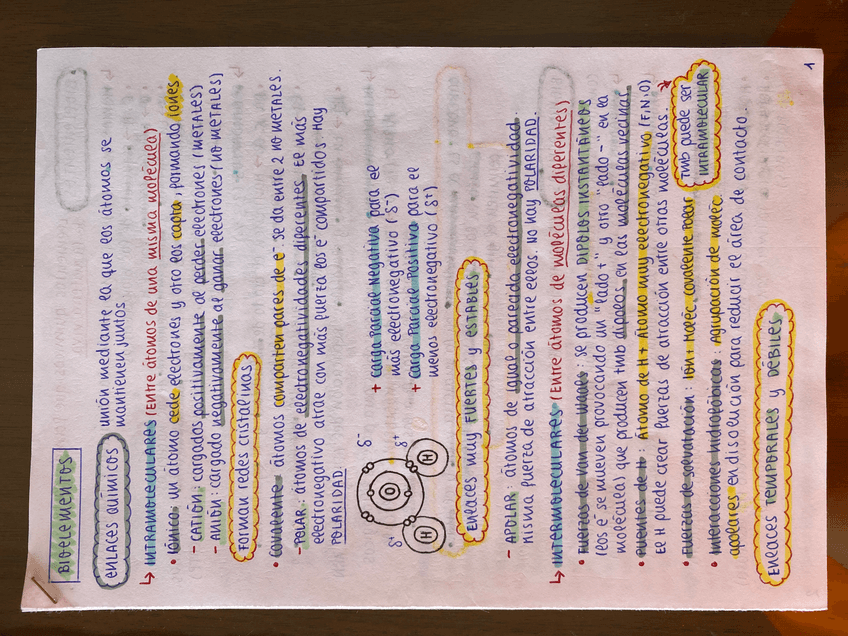 BIOELEMENTOS
ENLACES QUÍMICOS
unión mediante la que los átomos se
mantienen juntos
↳ INTRAMOLECULARES (Entre átomos de una misma molécula)
• Iónico: un átomo cede electrones y otro los capta, formando iones.
- CATIÓN: cargados positivamente al perder electrones (METALES)
- ANIÓN: cargado negativamente al ganar electrones (NO METALES)
Forman redes cristalinas
• Covalente: átomos comparten pares de e⁻. se da entre 2 no METALES.
- POLAR: átomos de electronegatividades diferentes. EL más
electronegativo atrae con más fuerza los e⁻ compartidos. Hay
POLARIDAD.
δ⁻
δ⁺
δ⁺
O
H
H
+ Carga Parcial Negativa para el
más electronegativo (δ⁻)
+ Carga Parcial Positiva para el
menos electronegativo (δ⁺)
Enlaces muy FUERTES y ESTABLES
- APOLAR: átomos de igual o parecida electronegatividad.
Misma fuerza de atracción entre ellos. NO hay POLARIDAD.
↳ INTERMOLECULARES (Entre átomos de moléculas diferentes)
• Fuerzas de Van der Waals: se producen DIPOLOS INSTANTÁNEOS
(los e⁻ se mueven provocando un "lado +" y otro "lado -" en la
molécula) que producen tmb dipolos en las moléculas vecinas.
• Puentes de H: Átomo de H + Átomo muy electronegativo (F,N,O)
El H puede crear fuerzas de atracción entre otras moléculas.
• Fuerzas de solvatación: Ión + Moléc. covalente polar
TMB puede ser
INTRAMOLECULAR
• Interacciones hidrofóbicas: Agrupación de moléc.
apolares en disolución para reducir el área de contacto.
Enlaces TEMPORALES y DÉBILES
1